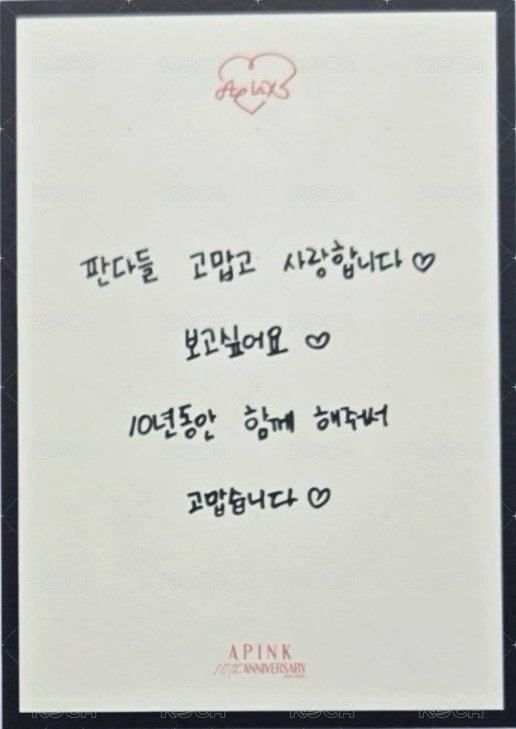 Apink
판다들 고맙고 사랑합니다♡
보고싶어요 ♡
10년동안 함께 해주셔서
고맙습니다 ♡
APINK
10th ANNIVERSARY